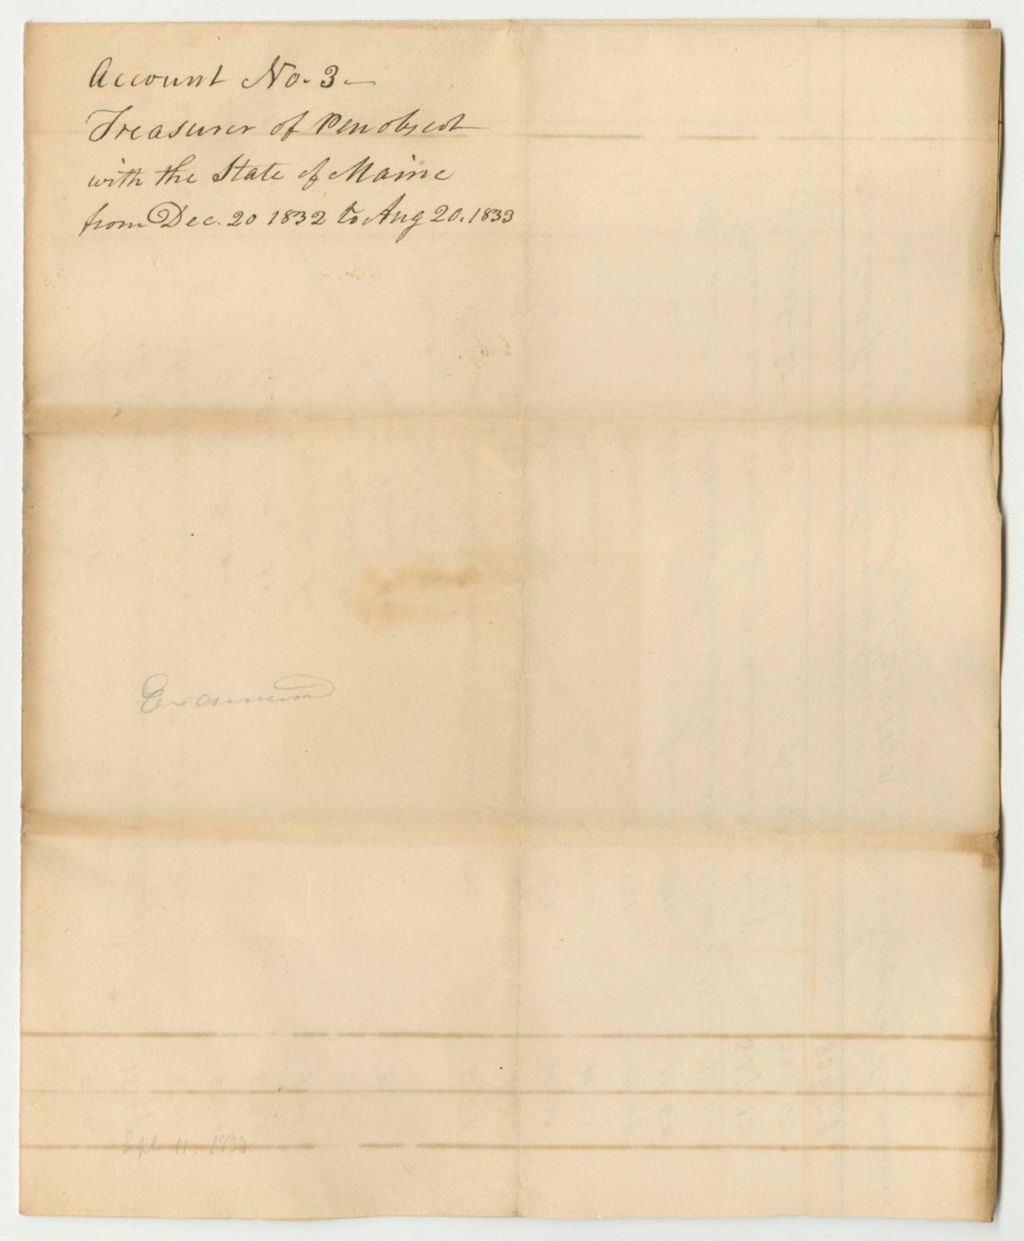 Account No. 3 -
Treasurer of Penobscot
with the State of Maine
from Dec. 20 1832 to Aug 20. 1833
Examined
Sept 11. 1833